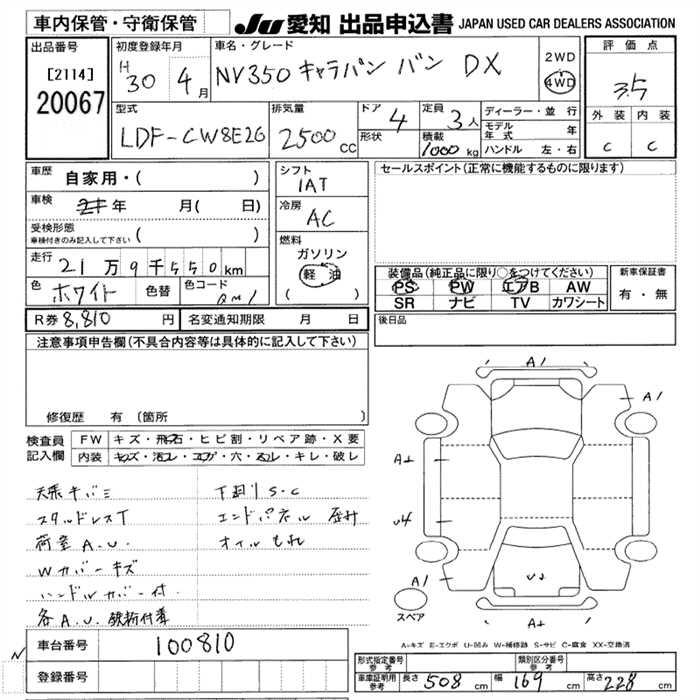 車内保管・守衛保管
JU 愛知 出品申込書 JAPAN USED CAR DEALERS ASSOCIATION
出品番号 [2114] 20067
初度登録年月 H 30 4月
車名・グレード NV350 キャラバン バン DX
2WD 4WD
評価点 3.5
外装 内装
C C
型式 LDF-CW8E26
排気量 2500 CC
ドア 4
形状
定員 3人
積載 1000 kg
ディーラー・並行
モデル年式 年
ハンドル 左・右
車歴 自家用・( )
車検 年 月( 日)
受検形態 車検付きのみ記入して下さい ( )
走行 21万9千550km
色 ホワイト 色替 色コード QM1
シフト IAT
冷房 AC
燃料 ガソリン 軽油 ( )
R券 8,810円 名変通知期限 月 日
セールスポイント(正常に機能するものに限ります)
装備品(純正品に限り○をつけてください)
PS PW エアB AW
SR ナビ TV カワシート
新車保証書 有・無
後日品
注意事項申告欄(不具合内容等は具体的に記入して下さい)
修復歴 有 (箇所
検査員記入欄
FW キズ・飛石・ヒビ割・リペア跡・X要
内装 キズ・汚レ・コゲ・穴・スレ・キレ・破レ
天張キバミ
スタッドレスT
荷室A.U.
Wカバーキズ
ハンドルカバー付.
各A.U.
下回りS・C
エンドパネル 歪み
オイルもれ
A1
A1
A1
A1
A1
スペア
A-キズ E-エクボ U-凹み W-補修跡 S-サビ C-腐食 XX-交換済
車台番号 100810
登録番号
N
形式指定番号 参考
類別区分番号 参考
車庫証明用 参考 長さ 508 cm 幅 169 cm 高さ 228 cm